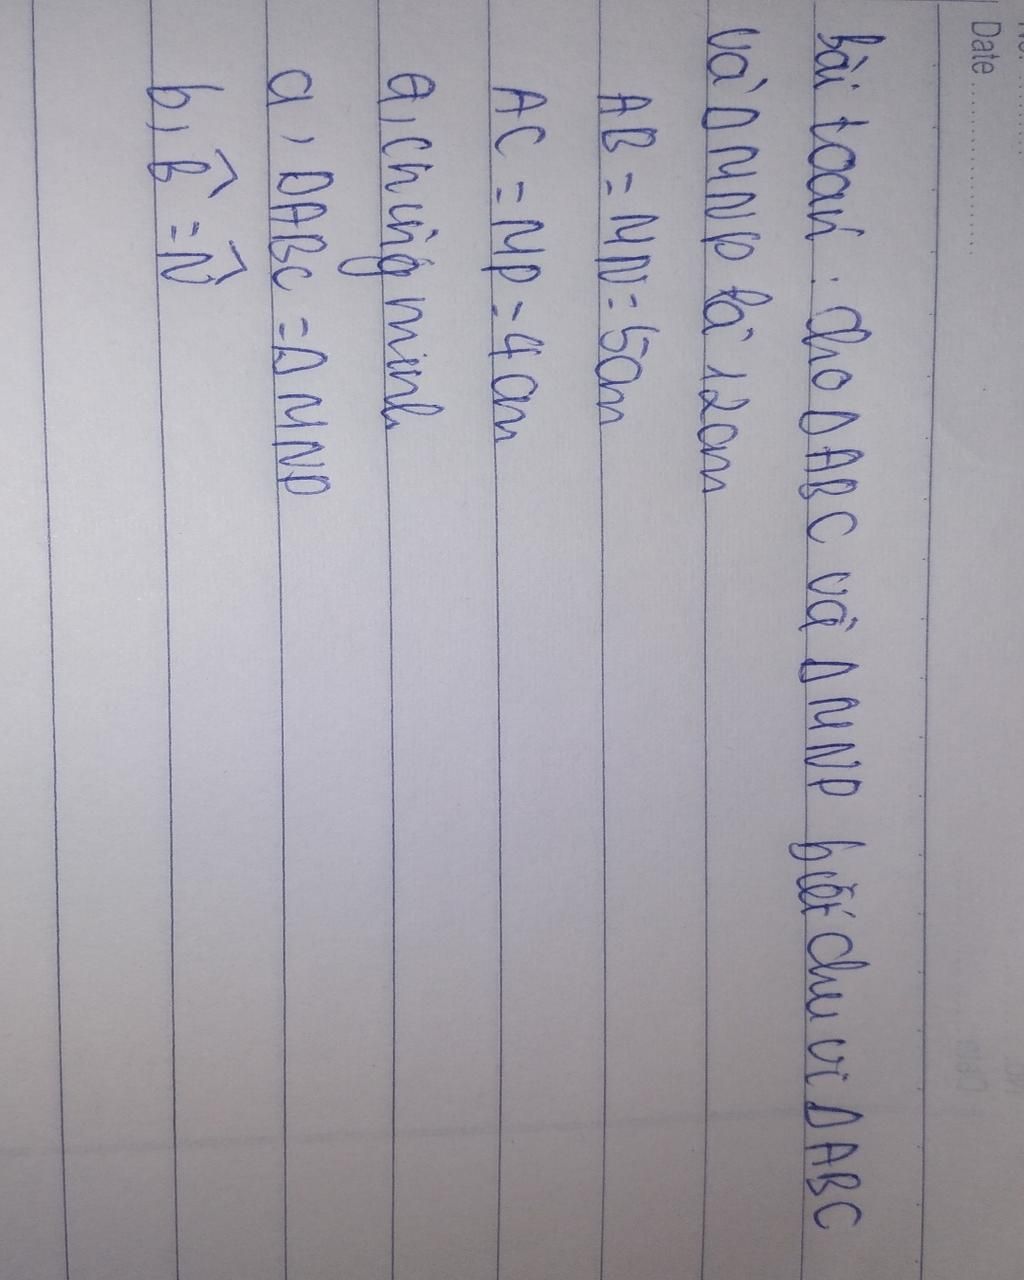 No: ............
Date ...................
bài toán : cho ΔABC và ΔMNP biết chu vi ΔABC
và ΔMNP là 12cm
AB = MN = 5cm
AC = MP = 4cm
a, chứng minh
a, ΔABC = ΔMNP
b, B̂ = N̂